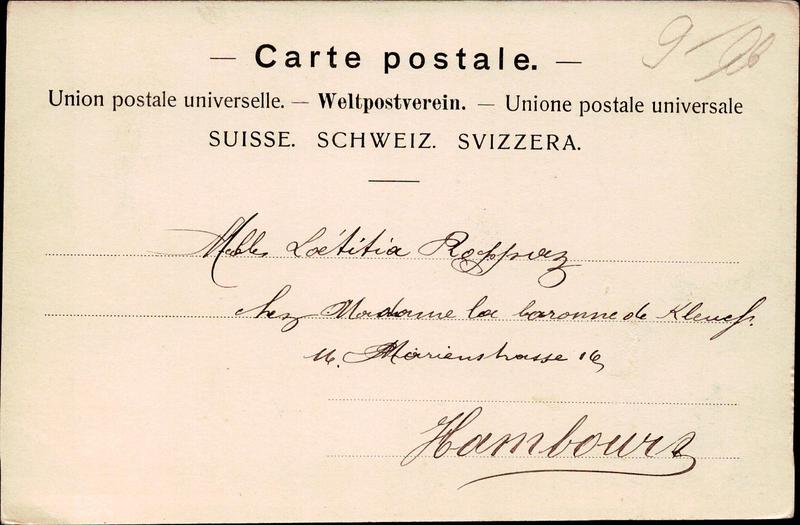 — Carte postale. —
Union postale universelle. — Weltpostverein. — Unione postale universale
SUISSE. SCHWEIZ. SVIZZERA.
Melle Loëtitia
chez Madame la baronne de
16. Marienstrasse 16
Hambourg